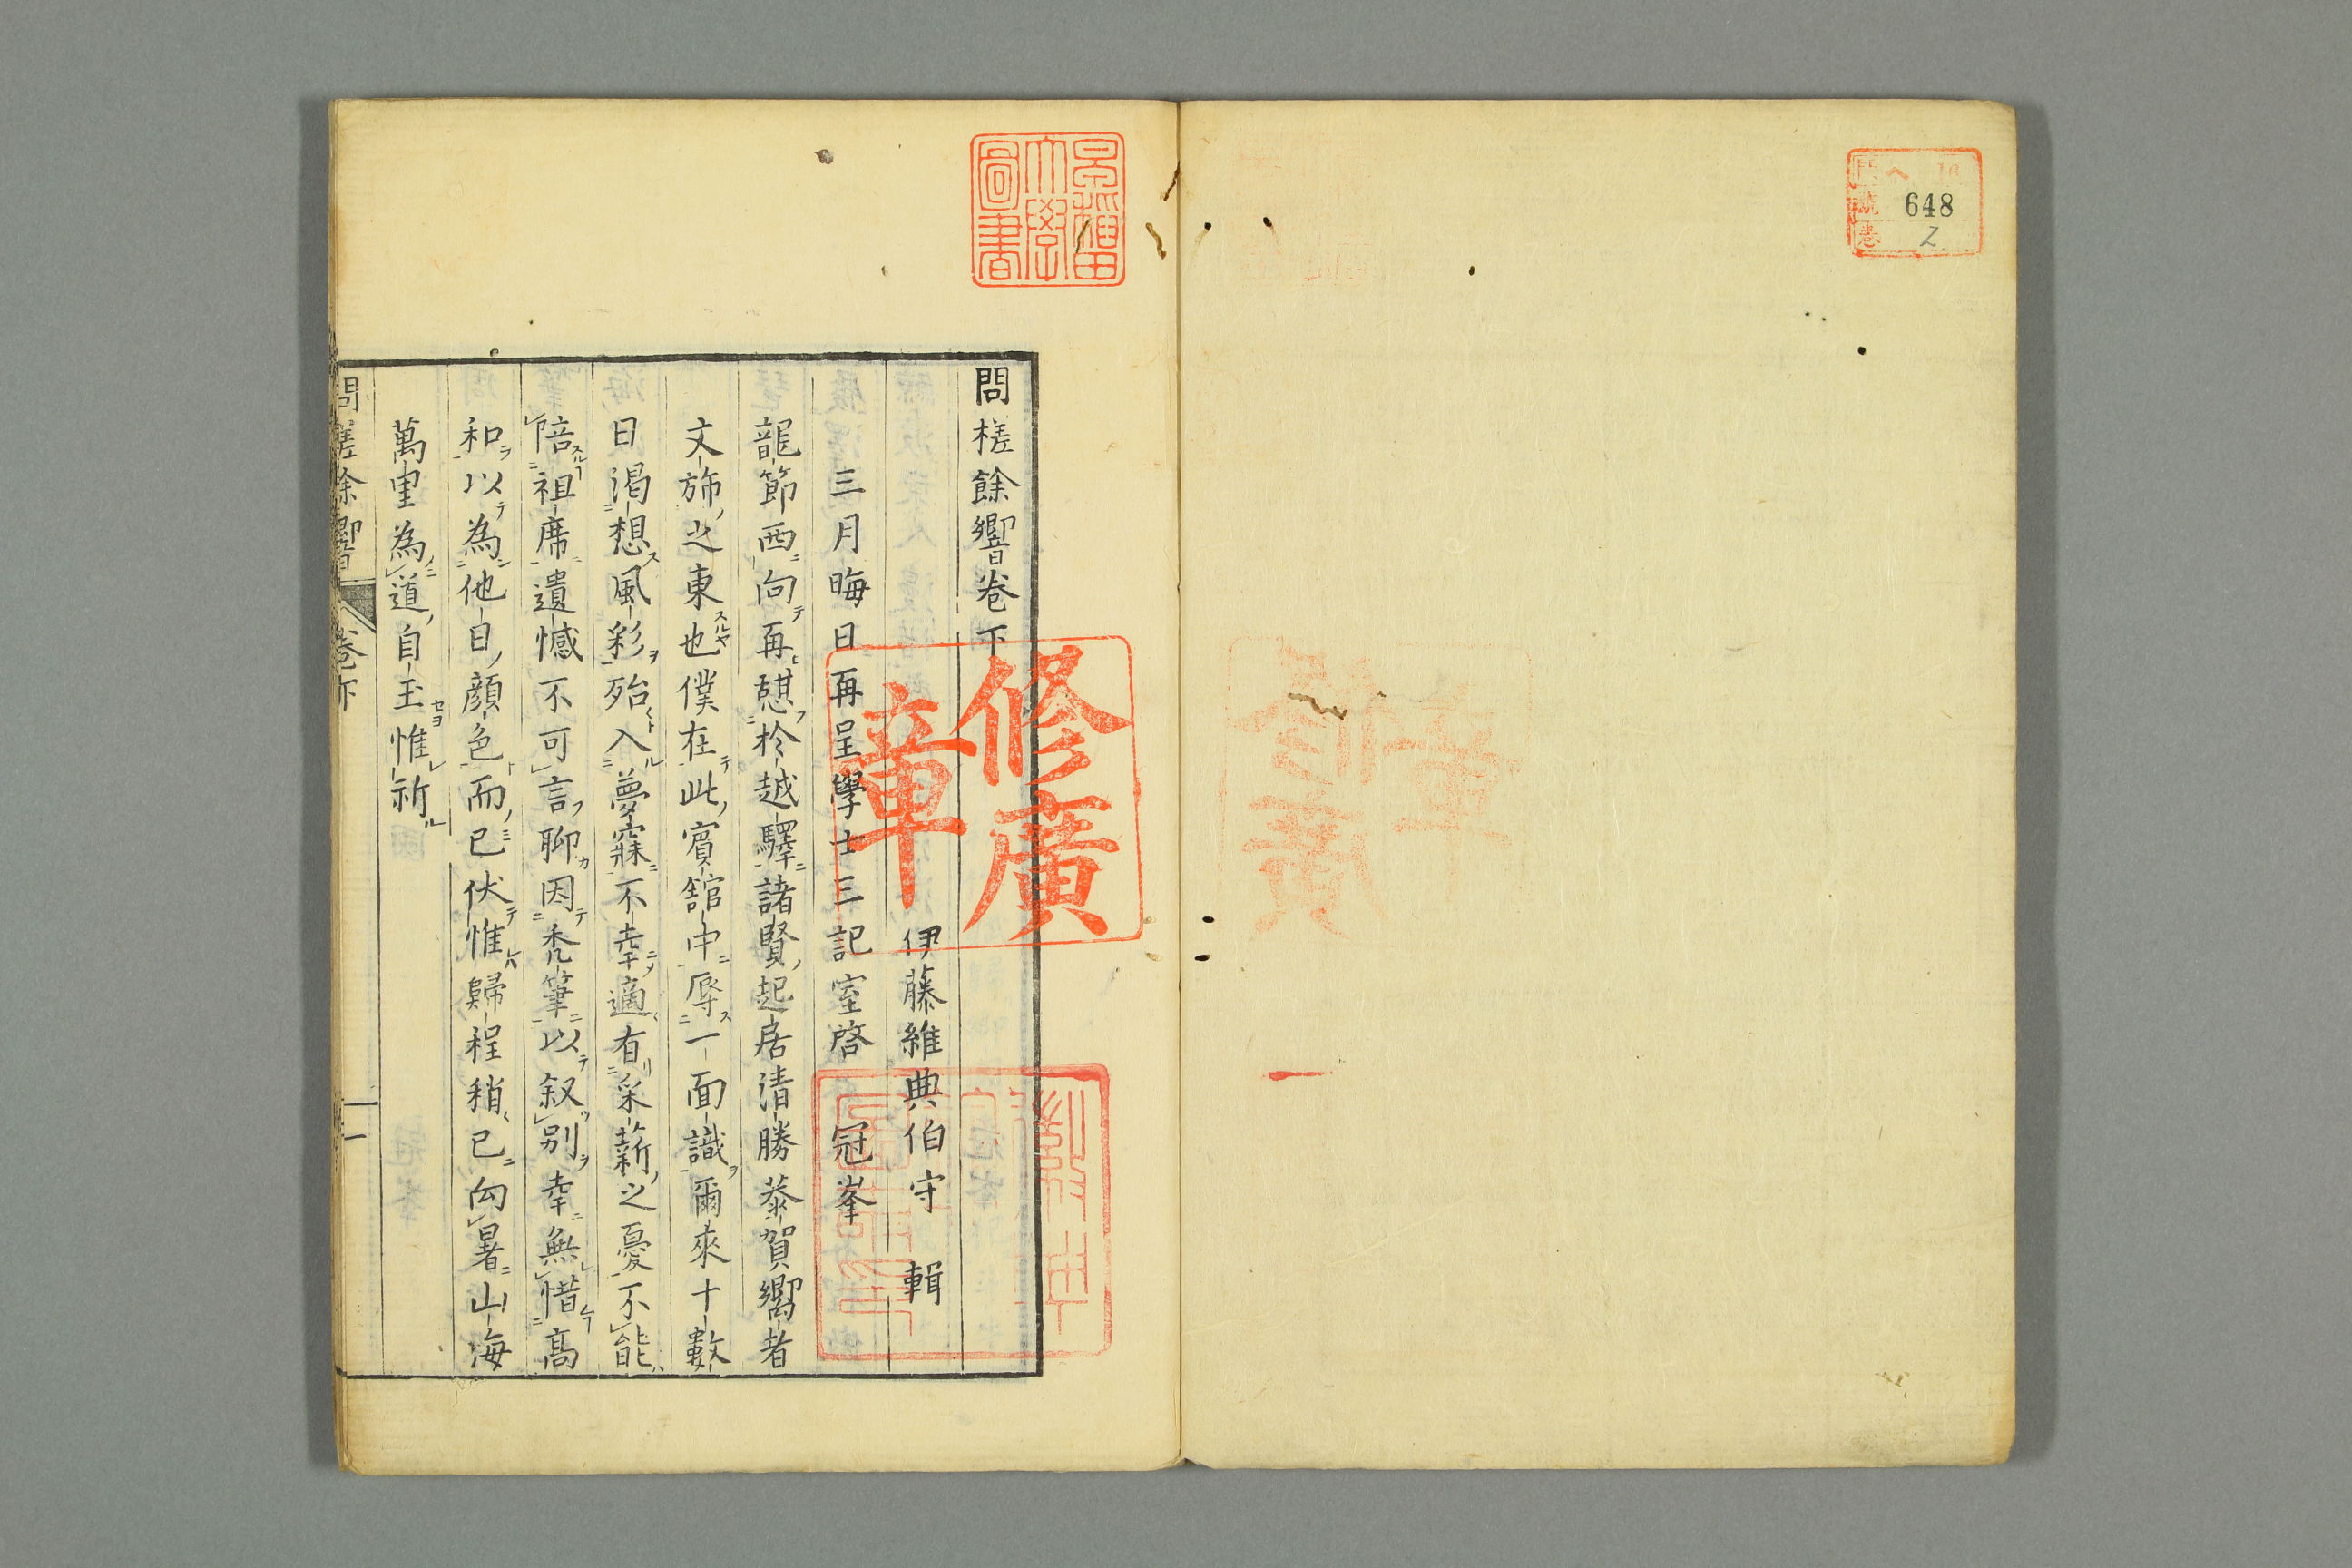 648
2
早稲田大學圖書
修廣章
問槎餘響卷下
伊藤維典伯守 輯
三月晦日再呈學士三記室啓 冠峯
龍節西向再憇於越驛諸賢起居清勝恭賀嚮者
文斾之東也僕在此賓舘中辱一面識爾來十數
日渴想風彩殆入夢寐不幸適有采薪之憂不能
陪祖席遺憾不可言聊因禿筆以叙別幸無惜高
和以為他日顔色而已伏惟歸程稍已向暑山海
萬里為道自玉惟祈
問槎餘響 卷下 一